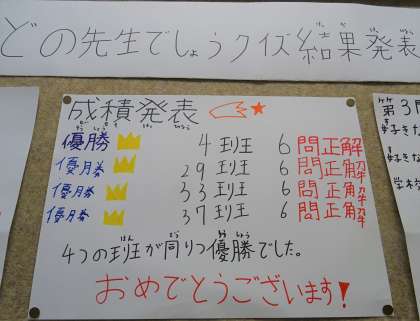 どの先生でしょうクイズ結果発表
成積発表
優勝 4班 6問正解
優勝 29班 6問正解
優勝 33班 6問正解
優勝 37班 6問正解
4つの班が同りつ優勝でした。
おめでとうございます!
第3問
好きな
好きな
学校